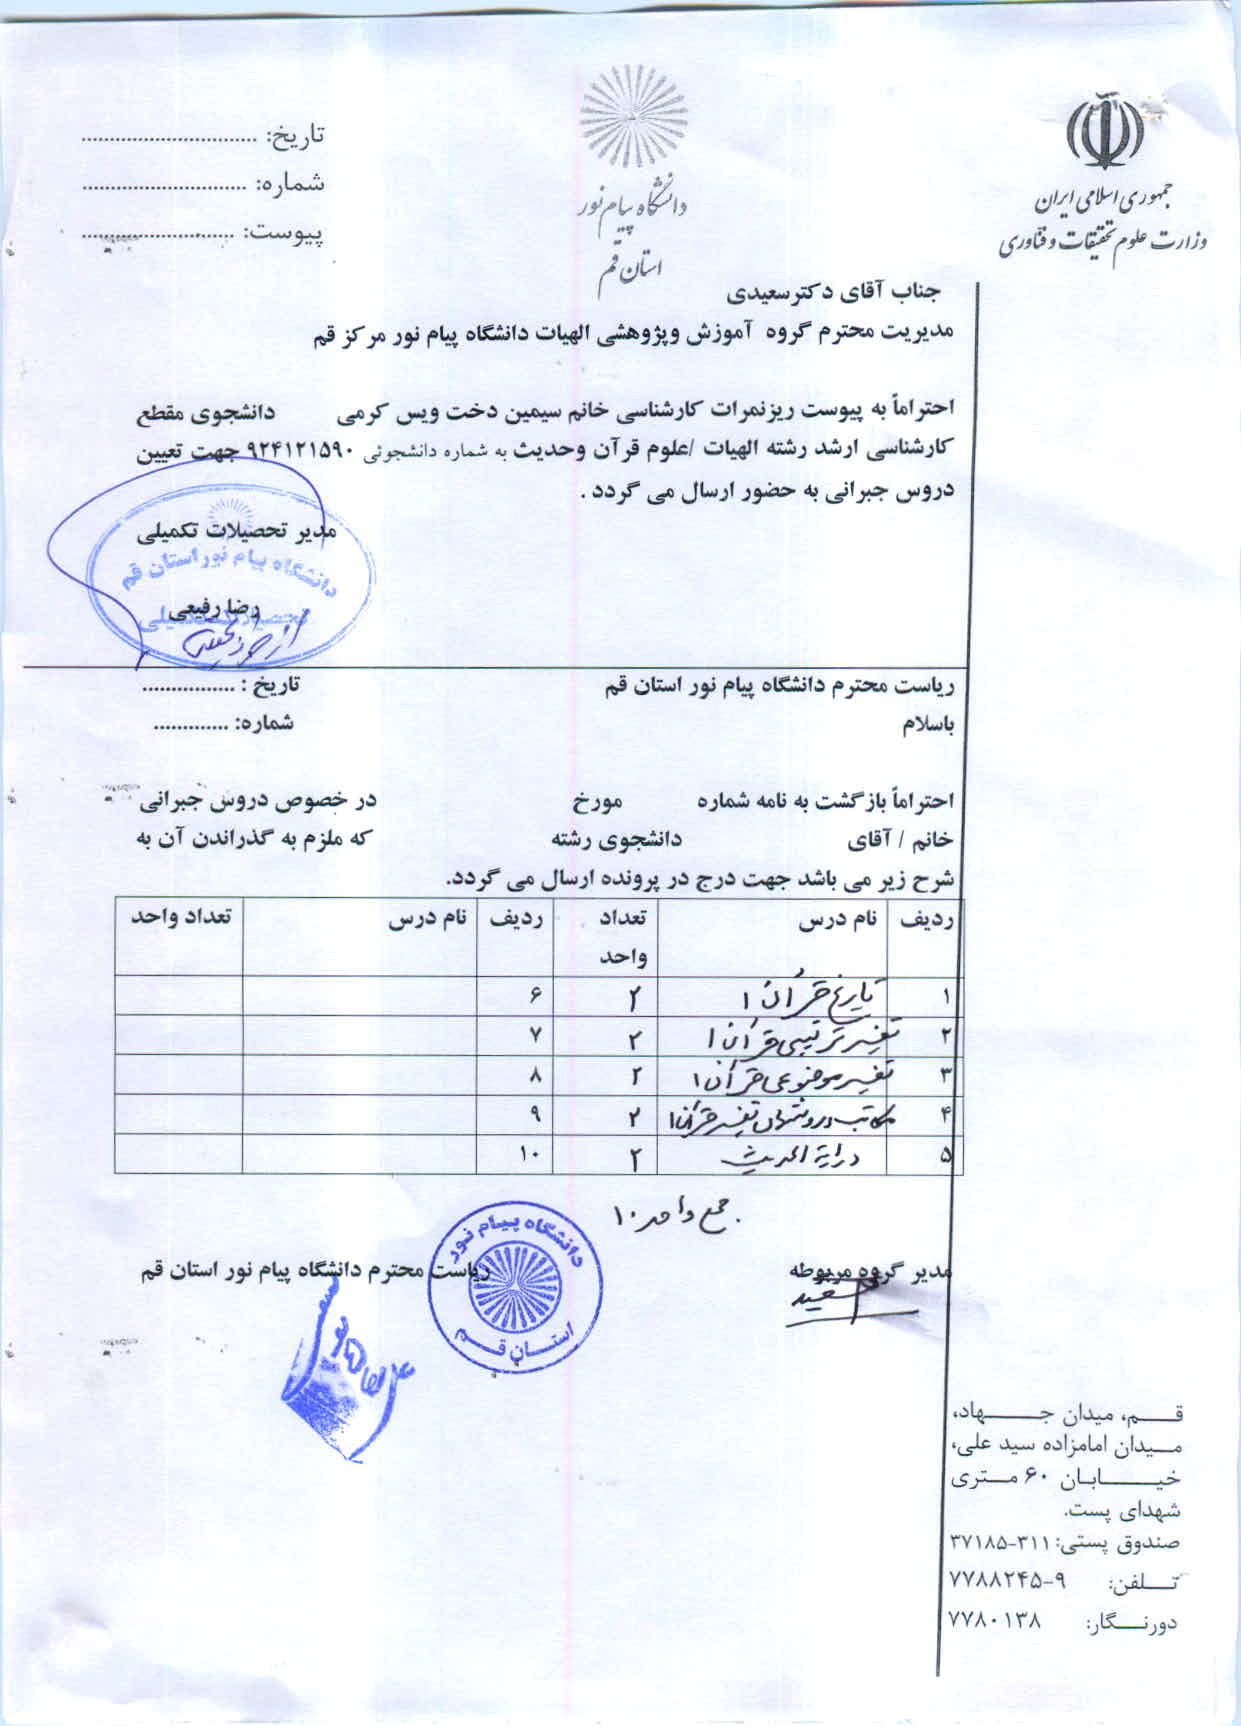 جمهوری اسلامی ایران
وزارت علوم تحقیقات و فناوری
دانشگاه پیام نور
استان قم
تاریخ: ................................
شماره: ..............................
پیوست: ............................
جناب آقای دکترسعیدی
مدیریت محترم گروه آموزش وپژوهشی الهیات دانشگاه پیام نور مرکز قم
احتراماً به پیوست ریزنمرات کارشناسی خانم سیمین دخت ویس کرمی دانشجوی مقطع
کارشناسی ارشد رشته الهیات /علوم قرآن وحدیث به شماره دانشجوئی ۹۲۴۱۲۱۵۹۰ جهت تعیین
دروس جبرانی به حضور ارسال می گردد .
مدیر تحصیلات تکمیلی
دانشگاه پیام نور استان قم
تحصیلات تکمیلی
رضا رفیعی
ریاست محترم دانشگاه پیام نور استان قم تاریخ : ................
باسلام شماره: .............
احتراماً بازگشت به نامه شماره مورخ در خصوص دروس جبرانی
خانم / آقای دانشجوی رشته که ملزم به گذراندن آن به
شرح زیر می باشد جهت درج در پرونده ارسال می گردد.
ردیف نام درس تعداد واحد ردیف نام درس تعداد واحد
۱ تاریخ قرآن ۱ ۲ ۶
۲ تفسیر ترتیبی قرآن ۱ ۲ ۷
۳ تفسیر موضوعی قرآن ۱ ۲ ۸
۴ مکاتب و روشهای تفسیر قرآن ۱ ۲ ۹
۵ درایة الحدیث ۲ ۱۰
جمع واحد ۱۰
مدیر گروه مربوطه ریاست محترم دانشگاه پیام نور استان قم
دانشگاه پیام نور
استان قم
قم، میدان جهاد،
میدان امامزاده سید علی،
خیابان ۶۰ متری
شهدای پست.
صندوق پستی: ۳۱۱-۳۷۱۸۵
تلفن: ۹-۷۷۸۸۲۴۵
دورنگار: ۷۷۸۰۱۳۸